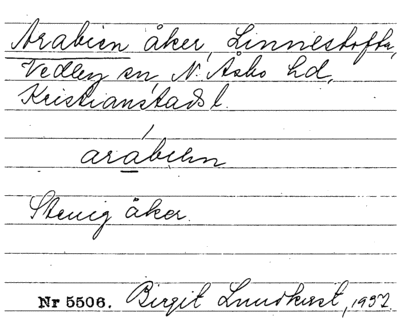 Arabien åker, Linnestofta,
Vedby sn N. Åsbo hd,
Kristianstads l.
arábien
Stenig åker.
Nr 5506. Birgit Lundkvist, 1937